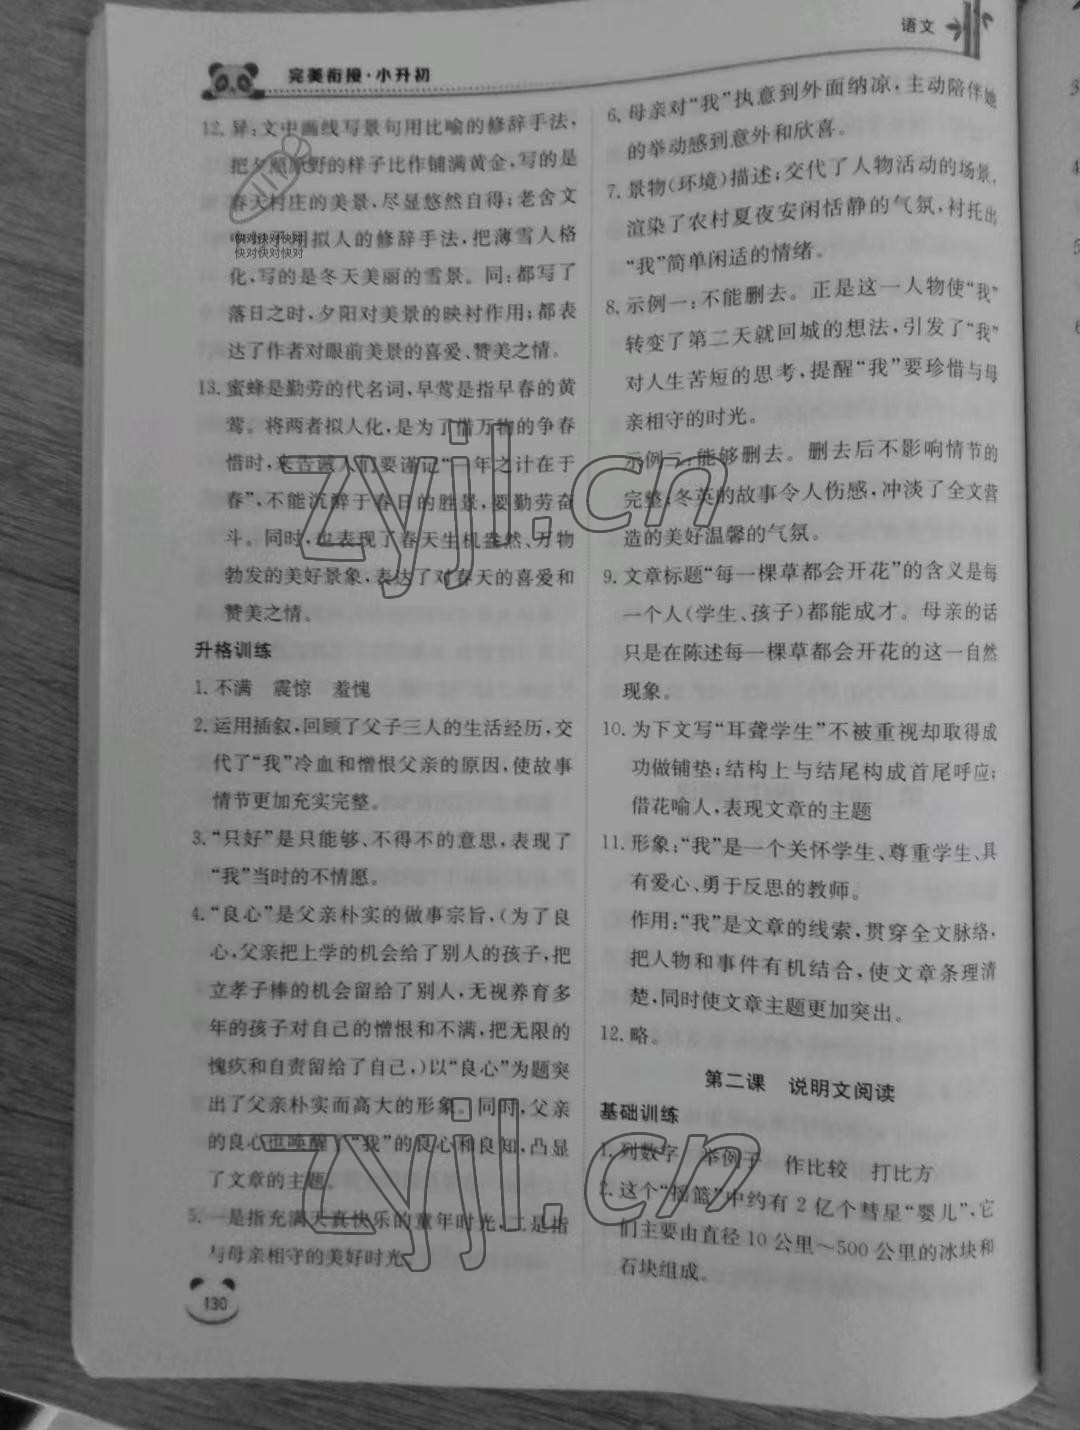 语文
完美衔接·小升初
12. 异:文中画线写景句用比喻的修辞手法,
把夕照原野的样子比作铺满黄金,写的是
春天村庄的美景,尽显悠然自得;老舍文
用拟人的修辞手法,把薄雪人格
化,写的是冬天美丽的雪景。同:都写了
落日之时,夕阳对美景的映衬作用;都表
达了作者对眼前美景的喜爱、赞美之情。
13. 蜜蜂是勤劳的代名词,早莺是指早春的黄
莺。将两者拟人化,是为了借万物的争春
惜时,来告诫人们要谨记“一年之计在于
春”,不能沉醉于春日的胜景,要勤劳奋
斗。同时,也表现了春天生机盎然、万物
勃发的美好景象,表达了对春天的喜爱和
赞美之情。
升格训练
1. 不满 震惊 羞愧
2. 运用插叙,回顾了父子三人的生活经历,交
代了“我”冷血和憎恨父亲的原因,使故事
情节更加充实完整。
3. “只好”是只能够、不得不的意思,表现了
“我”当时的不情愿。
4. “良心”是父亲朴实的做事宗旨,(为了良
心,父亲把上学的机会给了别人的孩子,把
立孝子棒的机会留给了别人,无视养育多
年的孩子对自己的憎恨和不满,把无限的
愧疚和自责留给了自己,)以“良心”为题突
出了父亲朴实而高大的形象。同时,父亲
的良心也唤醒了“我”的良心和良知,凸显
了文章的主题。
5. 一是指充满天真快乐的童年时光,二是指
与母亲相守的美好时光
130
6. 母亲对“我”执意到外面纳凉,主动陪伴她
的举动感到意外和欣喜。
7. 景物(环境)描述;交代了人物活动的场景,
渲染了农村夏夜安闲恬静的气氛,衬托出
“我”简单闲适的情绪。
8. 示例一:不能删去。正是这一人物使“我”
转变了第二天就回城的想法,引发了“我”
对人生苦短的思考,提醒“我”要珍惜与母
亲相守的时光。
示例二:能够删去。删去后不影响情节的
完整;冬英的故事令人伤感,冲淡了全文营
造的美好温馨的气氛。
9. 文章标题“每一棵草都会开花”的含义是每
一个人(学生、孩子)都能成才。母亲的话
只是在陈述每一棵草都会开花的这一自然
现象。
10. 为下文写“耳聋学生”不被重视却取得成
功做铺垫;结构上与结尾构成首尾呼应;
借花喻人,表现文章的主题
11. 形象:“我”是一个关怀学生、尊重学生、具
有爱心、勇于反思的教师。
作用:“我”是文章的线索,贯穿全文脉络,
把人物和事件有机结合,使文章条理清
楚,同时使文章主题更加突出。
12. 略。
第二课 说明文阅读
基础训练
1. 列数字 举例子 作比较 打比方
2. 这个“摇篮”中约有2亿个彗星“婴儿”,它
们主要由直径10公里~500公里的冰块和
石块组成。
快对快对快对
快对快对快对
zyjl.cn
zyjl.cn